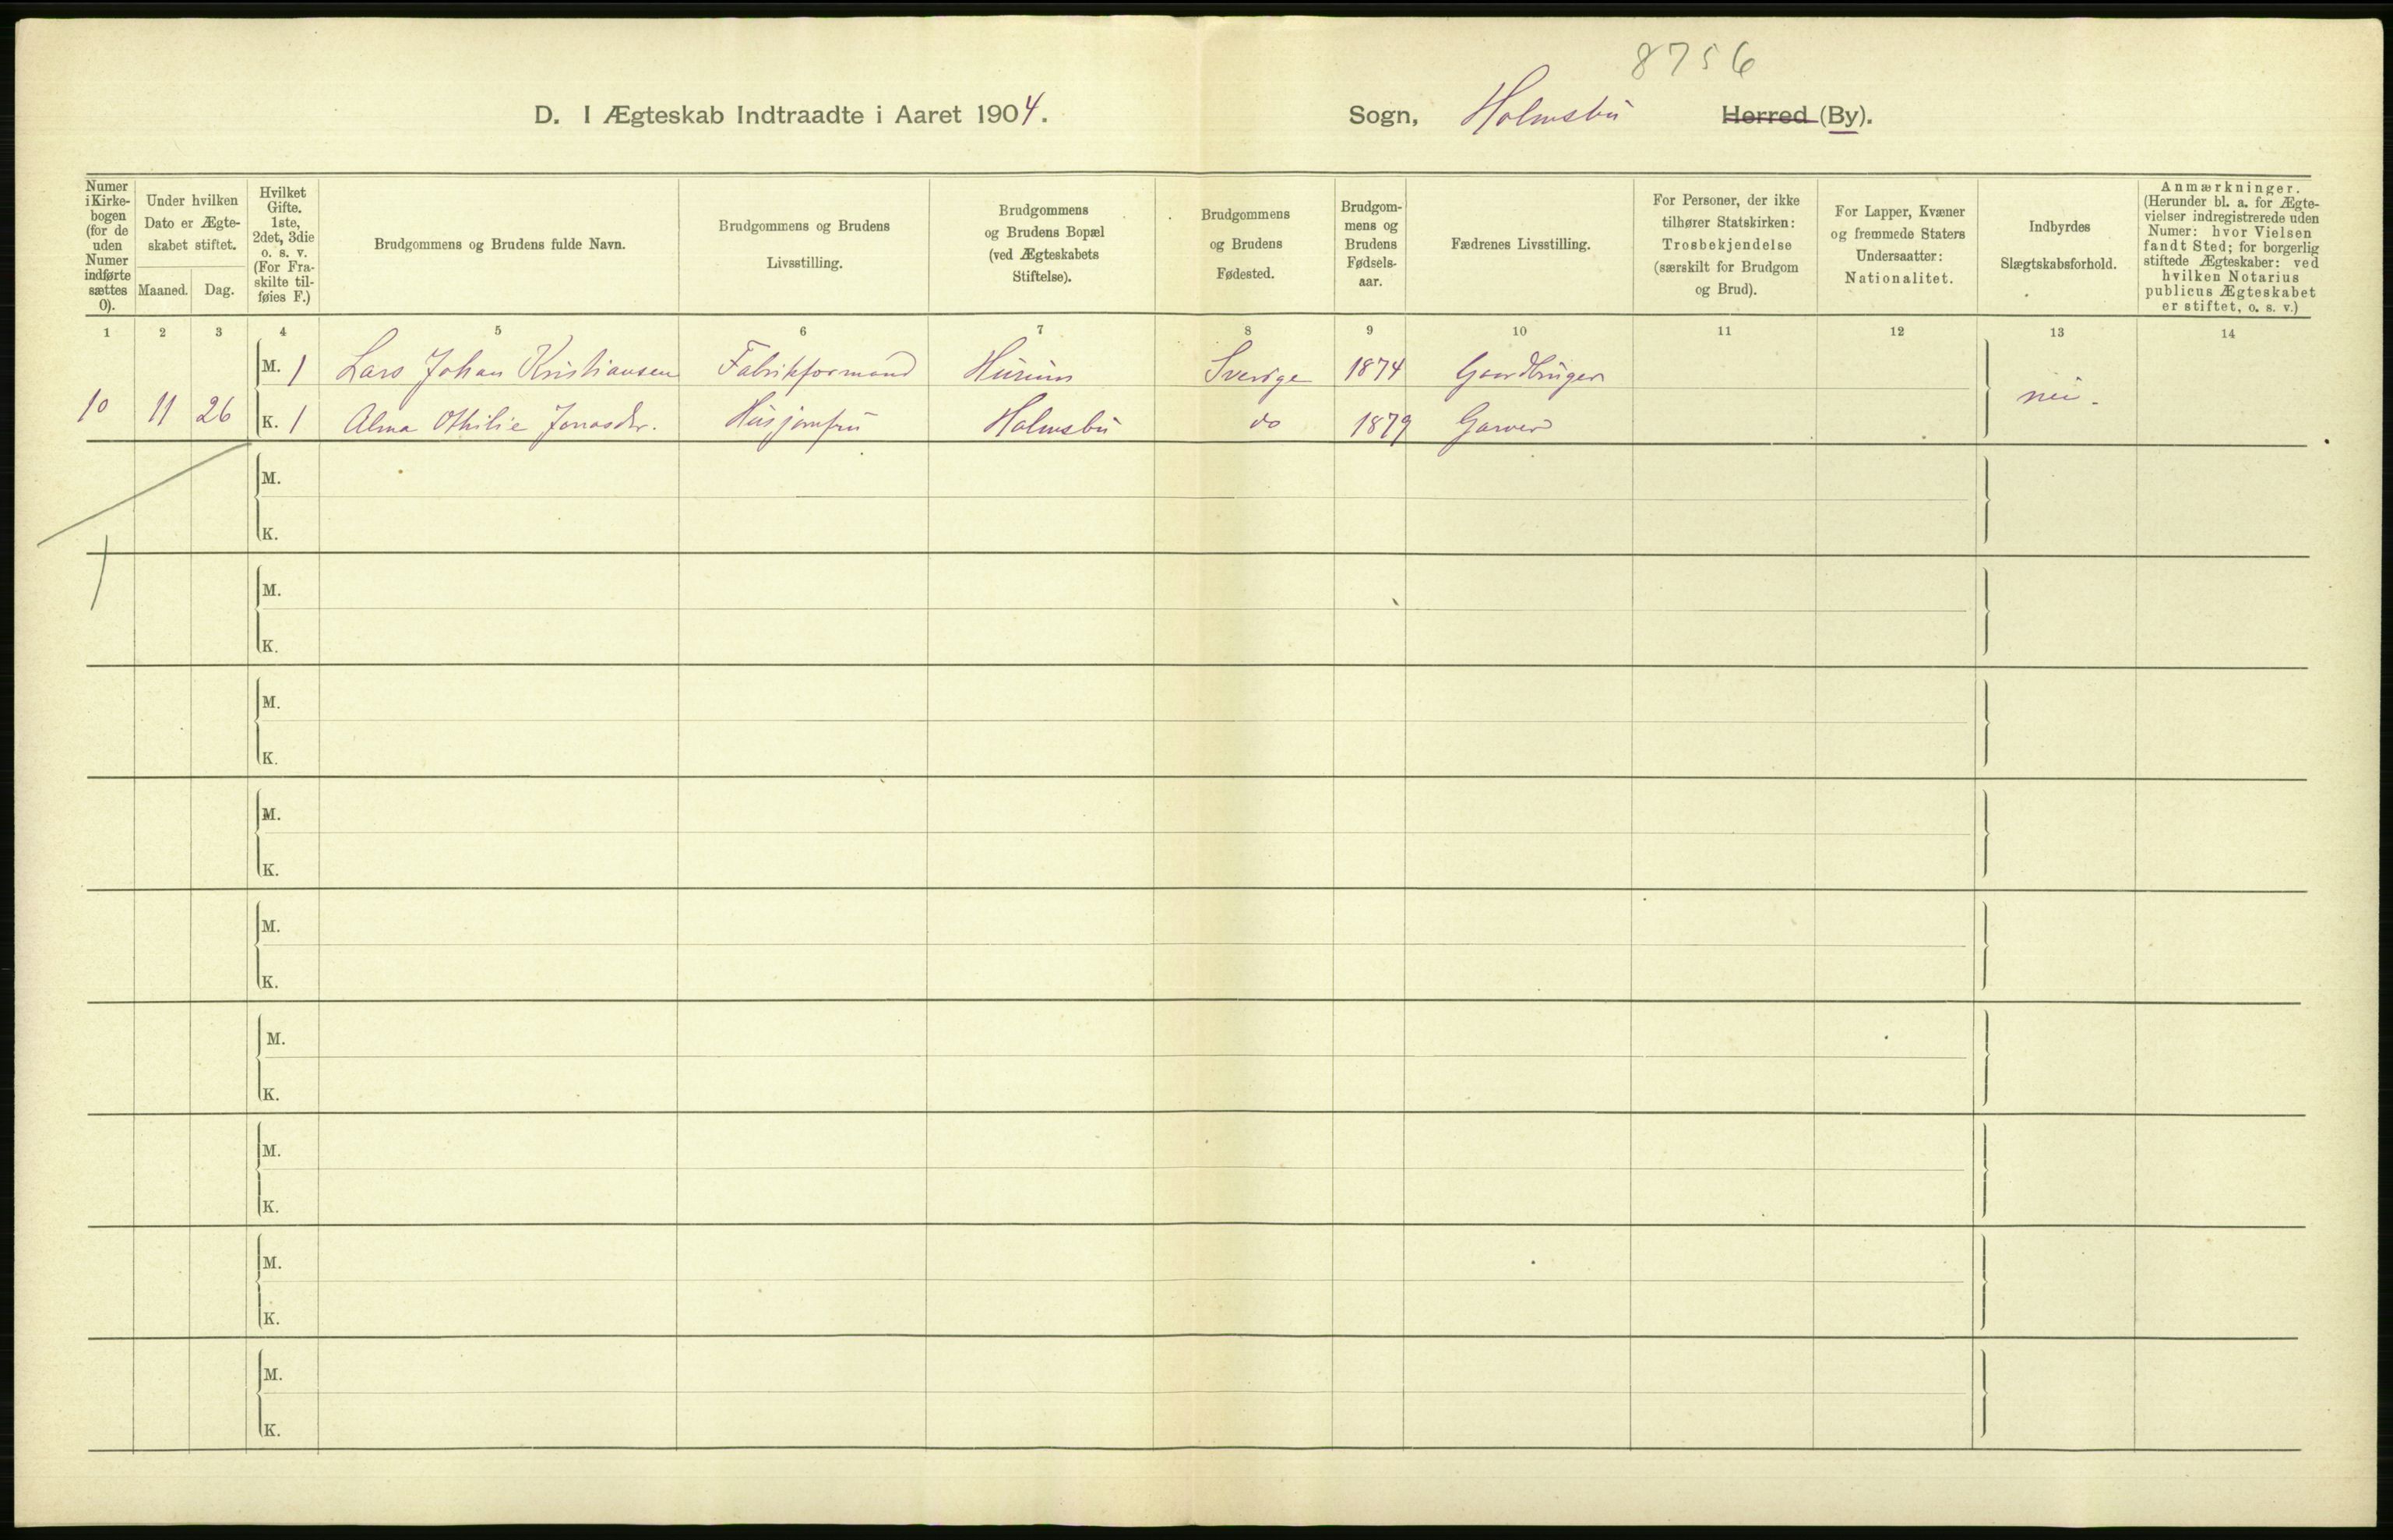 8756
D. I Ægteskab Indtraadte i Aaret 1904.
Sogn, Holmsbu Herred (By).
Numer i Kirke-bogen (for de uden Numer indførte sættes 0).
Under hvilken Dato er Ægte-skabet stiftet.
Maaned. Dag.
Hvilket Gifte. 1ste, 2det, 3die o. s. v. (For Fra-skilte til-føies F.)
Brudgommens og Brudens fulde Navn.
Brudgommens og Brudens Livsstilling.
Brudgommens og Brudens Bopæl (ved Ægteskabets Stiftelse).
Brudgommens og Brudens Fødested.
Brudgom-mens og Brudens Fødsels-aar.
Fædrenes Livsstilling.
For Personer, der ikke tilhører Statskirken: Trosbekjendelse (særskilt for Brudgom og Brud).
For Lapper, Kvæner og fremmede Staters Undersaatter: Nationalitet.
Indbyrdes Slægtskabsforhold.
Anmærkninger. (Herunder bl. a. for Ægte-vielser indregistrerede uden Numer: hvor Vielsen fandt Sted; for borgerlig stiftede Ægteskaber: ved hvilken Notarius publicus Ægteskabet er stiftet, o. s. v.)
1 2 3 4 5 6 7 8 9 10 11 12 13 14
M. 1 Lars Johan Kristiansen Fabrikformand Hurum Sverige 1874 Gaardbruger
10 11 26 K. 1 Alma Othilie Jonasdr. Husjomfru Holmsbu do 1879 Garver nei.
M.
K.
M.
K.
M.
K.
M.
K.
M.
K.
M.
K.
M.
K.
M.
K.
M.
K.